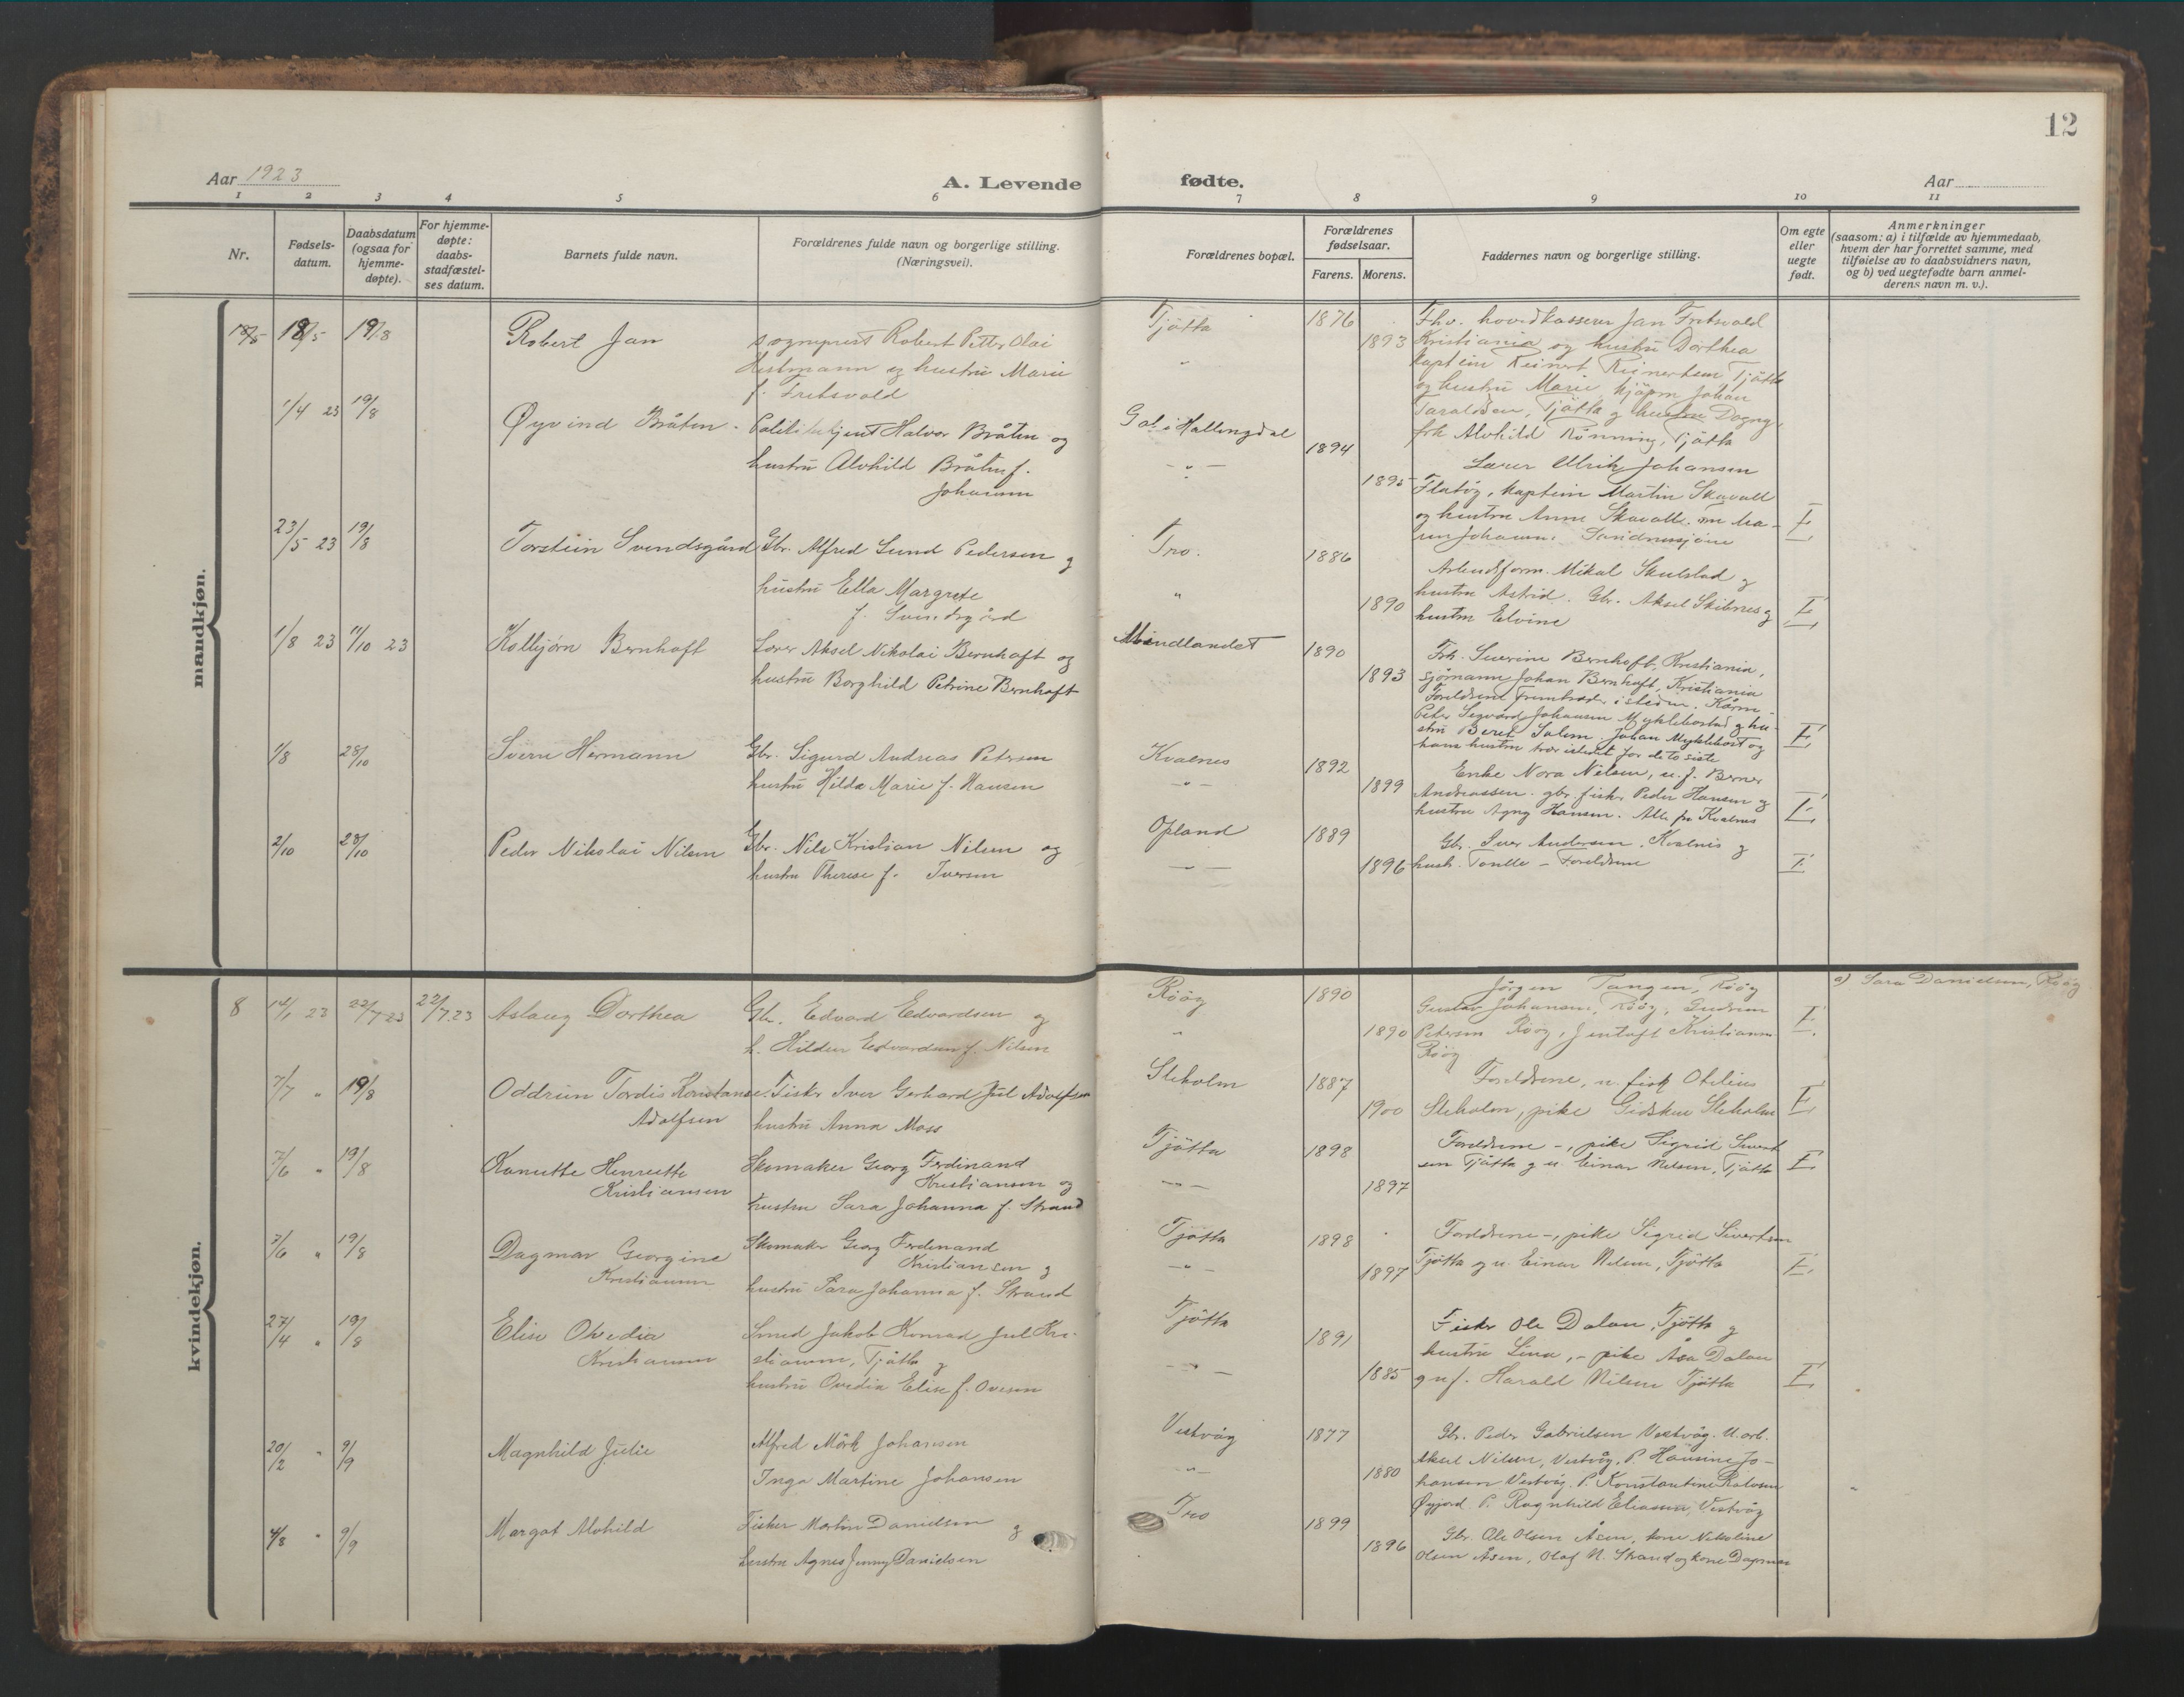 12
Aar 1923
A. Levende
fødte.
Aar
1 2 3 4 5 6 7 8 9 10 11
Nr.
Fødsels-
datum.
Daabsdatum
(ogsaa for
hjemme-
døpte).
For hjemme-
døpte:
daabs-
stadfæstel-
ses datum.
Barnets fulde navn.
Forældrenes fulde navn og borgerlige stilling.
(Næringsvei).
Forældrenes bopæl.
Forældrenes
fødselsaar.
Farens. Morens.
Faddernes navn og borgerlige stilling.
Om egte
eller
uegte
født.
Anmerkninger
(saasom: a) i tilfælde av hjemmedaab,
hvem der har forrettet samme, med
tilføielse av to daabsvidners navn,
og b) ved uegtefødte barn anmel-
derens navn m. v.).
mandkjøn.
18/5 18/5 19/8 Robert Jan
sogneprest Robert Petter Olai
og hustru Marie
f. Fritsvold
Tjötta 1876
" 1893
Fhv. hovedkasserer Jan Fritsvold
Kristiania og hustru Dorthea
kaptein Reinert Reinertsen Tjötta
og hustru Marie, kjöpm Johan
Taraldsen, Tjötta og hustru Dagny,
frk Alvhild Rönning, Tjötta
1/4 23 19/8 Øyvind Bråten
Halvor Bråten og
hustru Alvhild Bråten f.
Johansen
Gol i Hallingdal 1894
- " - 1895
Lærer Ulrik Johansen
Flatöy, kaptein Martin Skavall
og hustru Anne Skavall.
Johansen Sandnessjöen
E.
23/5 23 19/8 Torstein Svendsgård
Gbr. Alfred Lund Pedersen og
hustru Ella Margrete
f. Svendsgård
Tro. 1886
" 1890
Arbeidsform. Mikal Skulstad og
hustru Astrid. Gbr. Aksel Skibnes og
hustru Elvine
E.
1/8 23 11/10 23 Kolbjörn Bernhoft
Lærer Aksel Nikolai Bernhoft og
hustru Borghild Petrine Bernhoft
Mindlandet 1890
1893
Frk. Severine Bernhoft, Kristiania,
sjömann Johan Bernhoft, Kristiania
Foreldrene isteden.
Peter Segvard Johansen Myklebostad og hu-
stru Beret Johan Myklebost og
hans hustru istedet for de to siste
E
1/8 28/10 Sverre Hermann
Gbr. Sigurd Andreas Petersen
hustru Hilda Marie f. Hansen
Kvalnes 1892
- " - 1899
Enke Nora Nilsen, u. f. Berner
Andreassen. gbr. fisker Peder Hansen og
hustru Agny Hansen. Alle fra Kvalnes
E.
2/10 28/10 Peder Nikolai Nilsen
Gbr. Nils Kristian Nilsen og
hustru Therese f. Iversen
Opland 1889
1896
Gbr. Iver Andersen. Kvalnes og
hust. - Foreldrene
E
kvindekjøn.
8 14/1 23 22/7 23 22/7 23 Aslaug Dorthea
Gbr. Edvard Edvardsen og
h. Hildur Edvardsen f. Nilsen
Röög 1890
" 1890
Jörgen Tangen, Röög
Gustav Johansen, Röög, Gudrun
Petersen Röög, Jentoft Kristiansen
Röög
E.
a) Sara Danielsen, Röög
7/7 " 19/8 Oddrun Tordis Konstance
Adolfsen
Fisker Iver Gerhard Jul Adolfsen
hustru Anna Moss
Sleholm 1887
1900
Foreldrene, u. fisk Otelius
Sleholm, pike Gidsken Sleholm
E.
7/6 " 19/8 Kanutte Henriette
Kristiansen
Skomaker Georg Ferdinand
Kristiansen og
hustru Sara Johanna f. Strand
Tjötta 1898
- " - 1897
Foreldrene -, pike Sigrid Sivert-
sen Tjötta og u. Einar Nilsen, Tjötta
E.
7/6 " 19/8 Dagmar Georgine
Kristiansen
Skomaker Georg Ferdinand
Kristiansen og
hustru Sara Johanna f. Strand
Tjötta 1898
- " - 1897
Foreldrene -, pike Sigrid Sivertsen
Tjötta og u. Einar Nilsen, Tjötta
E.
27/4 " 19/8 Elise Ovedia
Kristiansen
Smed Jakob Konrad Jul Kri-
stiansen, Tjötta og
hustru Ovedia Elise f. Ovesen
Tjötta 1891
- " - 1885
Fisker Ole Dalan, Tjötta og
hustru Lina, - pike Åsa Dalan
og u f. Harald Nilsen Tjötta
E.
20/2 " 9/9 Magnhild Julie
Alfred Mörk Johansen
Inga Martine Johansen
Vestvåg 1877
- " - 1880
Gbr. Peder Gabrielsen Vestvåg. U. arb.
Aksel Nilsen, Vestvåg, P. Hansine Jo-
hansen Vestvåg. P. Konstantine
Øyjord P. Ragnhild Eliassen, Vestvåg
"
4/8 " 9/9 Margot Alvhild
Fisker Martin Danielsen og
hustru Agnes Jenny Danielsen
Tro 1899
1896
Gbr. Ole Olsen Åsen, kone Nikoline
Olsen Åsen, Olaf N. Strand og kone Dagmar